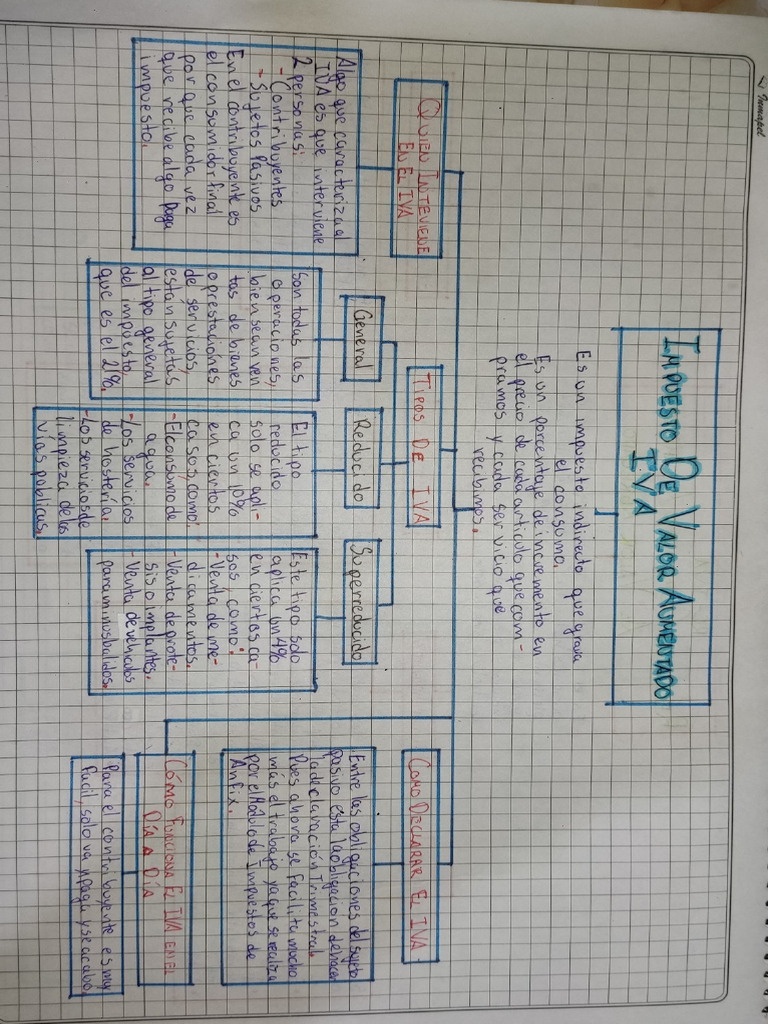 Inmapel
IMPUESTO DE VALOR AUMENTADO
IVA
Es un impuesto indirecto que grava
el consumo.
Es un porcentaje de incremento en
el precio de cada articulo que com-
pramos y cada servicio que
recibimos.
QUIEN INTEVIENE
EN EL IVA
Algo que caracteriza al
IVA es que interviene
2 personas:
- Contribuyentes
- Sujetos Pasivos
En el contribuyente es
el consumidor final
por que cada vez
que recibe algo Paga
impuesto.
TIPOS DE IVA
General
Son todas las
operaciones,
bien sean ven
tas de bienes
o prestaciones
de servicios,
estan sujetas
al tipo general
del impuesto,
que es el 21%.
Reducido
El tipo
reducido
solo se apli-
ca un 10%
en ciertos
casos, como:
- El consumo de
agua.
- Los servicios
de hosteria.
- Los servicios de
limpieza de las
vías públicas.
Superreducido
Este tipo solo
aplica un 4%
en ciertos ca-
sos, como:
- Venta de me-
dicamentos.
- Venta de prote-
sis o implantes.
- Venta de vehículos
para minusbalidos.
COMO DECLARAR EL IVA
Entre las obligaciones del sujeto
pasivo esta la obligacion de hacer
la declaración Trimestral.
Pues ahora se facilita mucho
más el trabajo ya que se realiza
por el Módulo de Impuestos de
Anfix.
CÓMO FUNCIONA EL IVA EN EL
DÍA A DÍA
Para el contribuyente es muy
facil, solo va y paga y se acabo.